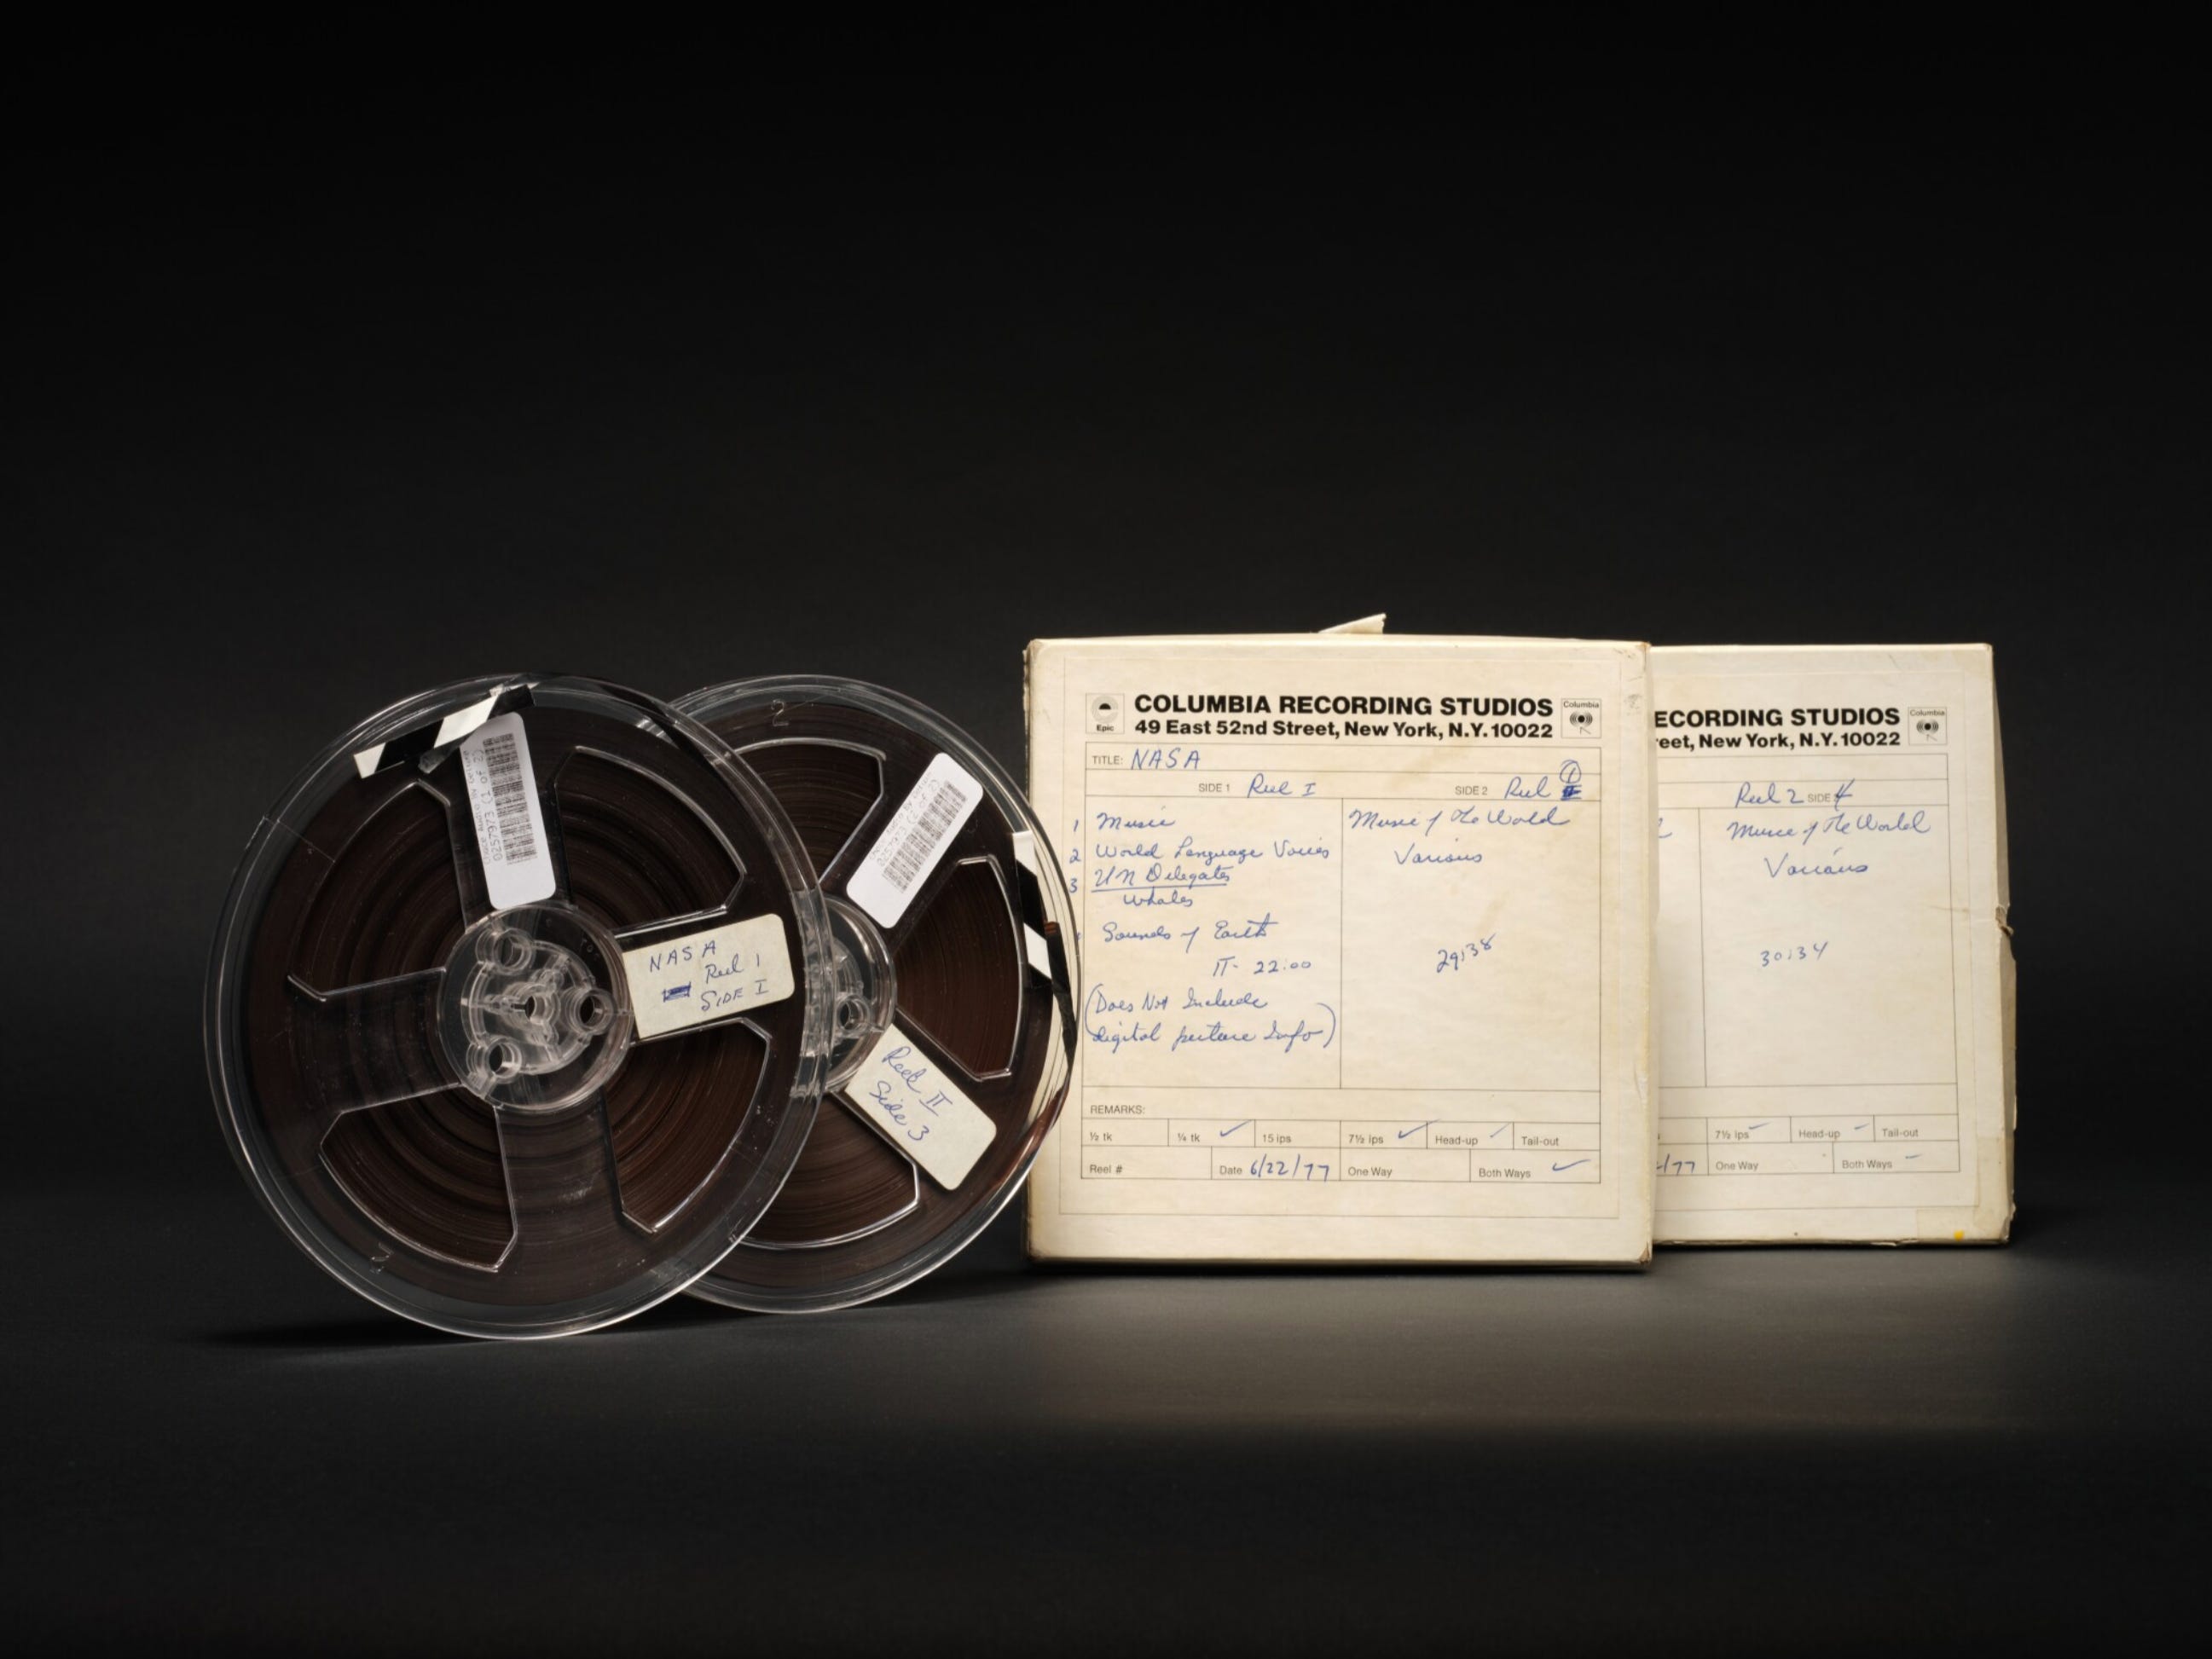 2
(1 of 2)
0257973
NASA
Reel 1
SIDE I
Reel II
Side 3
Epic
COLUMBIA RECORDING STUDIOS
49 East 52nd Street, New York, N.Y. 10022
Columbia
TITLE: NASA
SIDE 1 Reel I
SIDE 2 Reel 1
1 Music
2 World Language Voices
3 UN Delegates
Whales
Sounds of Earth
TT- 22:00
(Does Not Include
digital picture Info)
Music of the World
Various
29:38
REMARKS:
½ tk ¼ tk ✓ 15 ips 7½ ips ✓ Head-up ✓ Tail-out
Reel # Date 6/22/77 One Way Both Ways ✓
ECORDING STUDIOS
reet, New York, N.Y. 10022
Columbia
Reel 2 SIDE 4
Music of the World
Various
30:34
7½ ips Head-up Tail-out
/77 One Way Both Ways